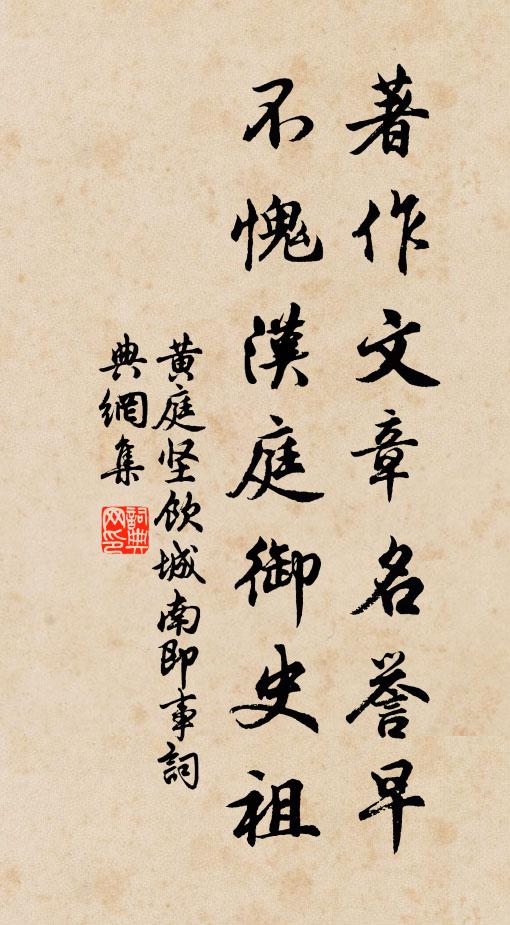 著作文章名誉早
不愧漢庭御史祖
黄庭坚飲城南即事詞
典網集
詞典网印